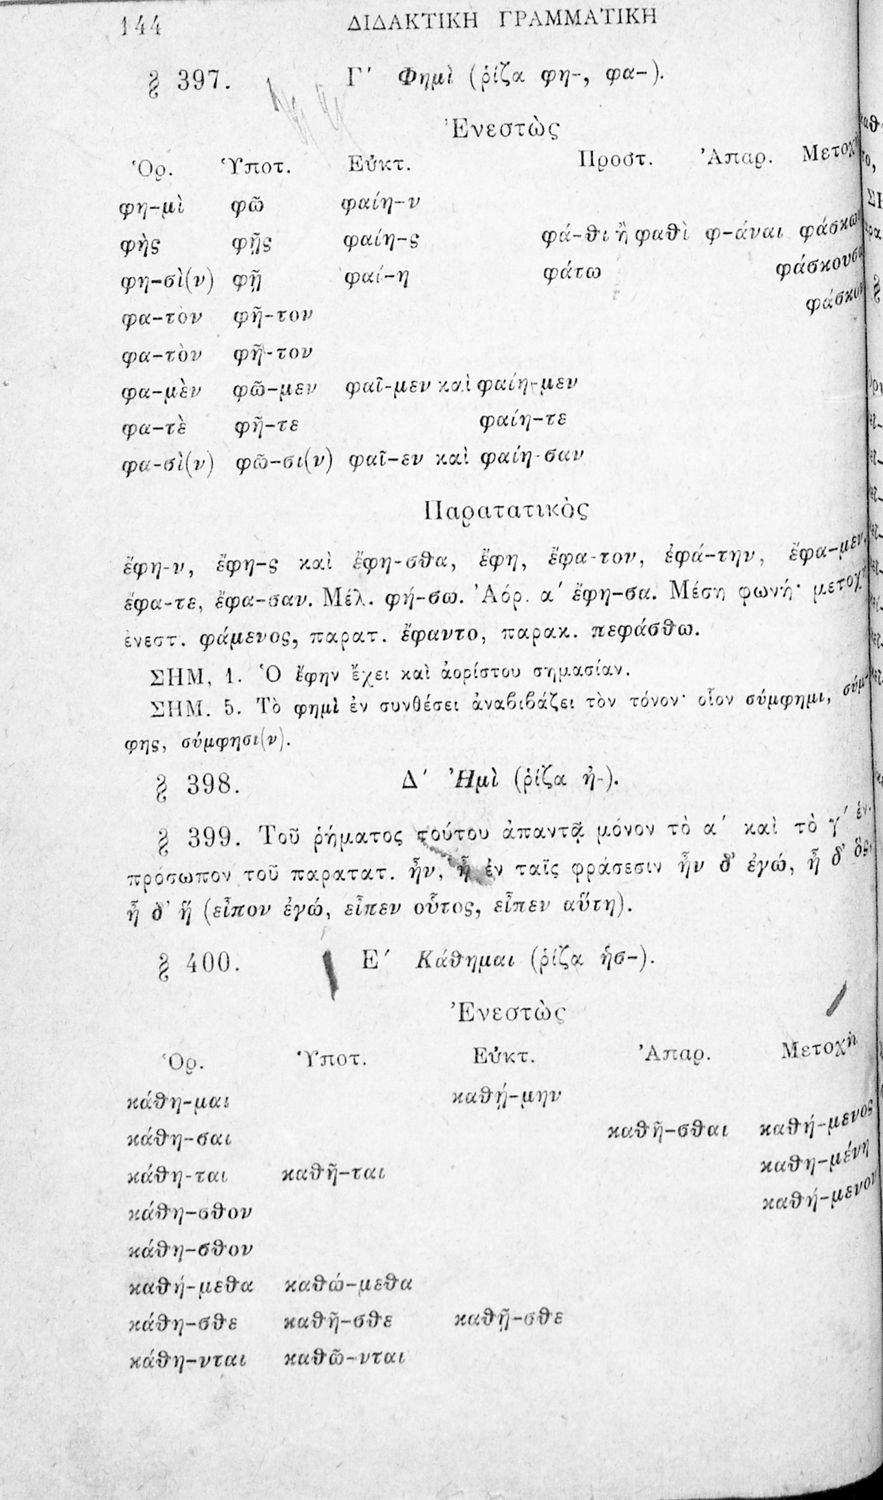 144 ΔΙΔΑΚΤΙΚΗ ΓΡΑΜΜΑΤΙΚΗ
§ 397. Γ΄ Φημὶ (ῥίζα φη-, φα-).
Ἐνεστὼς
Ὁρ. Ὑποτ. Εὐκτ. Προστ. Ἀπαρ. Μετοχὴ
φη-μὶ φῶ φαίη-ν
φὴς φῇς φαίη-ς φά-θι ἢ φαθὶ φ-άναι φάσκων
φη-σὶ(ν) φῇ φαί-η φάτω φάσκουσα
φα-τὸν φῆ-τον φάσκον
φα-τὸν φῆ-τον
φα-μὲν φῶ-μεν φαῖ-μεν καὶ φαίη-μεν
φα-τὲ φῆ-τε φαίη-τε
φα-σὶ(ν) φῶ-σι(ν) φαῖ-εν καὶ φαίη-σαν
Παρατατικὸς
ἔφη-ν, ἔφη-ς καὶ ἔφη-σθα, ἔφη, ἔφα-τον, ἐφά-την, ἔφα-μεν,
ἔφα-τε, ἔφα-σαν. Μέλ. φή-σω. Ἀόρ. α΄ ἔφη-σα. Μέση φωνή· μετοχὴ
ἐνεστ. φάμενος, παρατ. ἔφαντο, παρακ. πεφάσθω.
ΣΗΜ, 1. Ὁ ἔφην ἔχει καὶ ἀορίστου σημασίαν.
ΣΗΜ. 5. Τὸ φημὶ ἐν συνθέσει ἀναβιβάζει τὸν τόνον· οἷον σύμφημι, σύμ-
φης, σύμφησι(ν).
§ 398. Δ΄ Ἠμὶ (ῥίζα ἠ-).
§ 399. Τοῦ ῥήματος τούτου ἀπαντᾷ μόνον τὸ α΄ καὶ τὸ γ΄ ἑν.
πρόσωπον τοῦ παρατατ. ἦν, ἦ ἐν ταῖς φράσεσιν ἦν δ' ἐγώ, ἦ δ' ὅς,
ἦ δ' ἥ (εἶπον ἐγώ, εἶπεν οὗτος, εἶπεν αὕτη).
§ 400. Ε΄ Κάθημαι (ῥίζα ἡσ-).
Ἐνεστὼς
Ὁρ. Ὑποτ. Εὐκτ. Ἀπαρ. Μετοχὴ
κάθη-μαι καθῄ-μην
κάθη-σαι καθῆ-σθαι καθή-μενος
κάθη-ται καθῆ-ται καθη-μένη
κάθη-σθον καθή-μενον
κάθη-σθον
καθή-μεθα καθώ-μεθα
κάθη-σθε καθῆ-σθε καθῇ-σθε
κάθη-νται καθῶ-νται